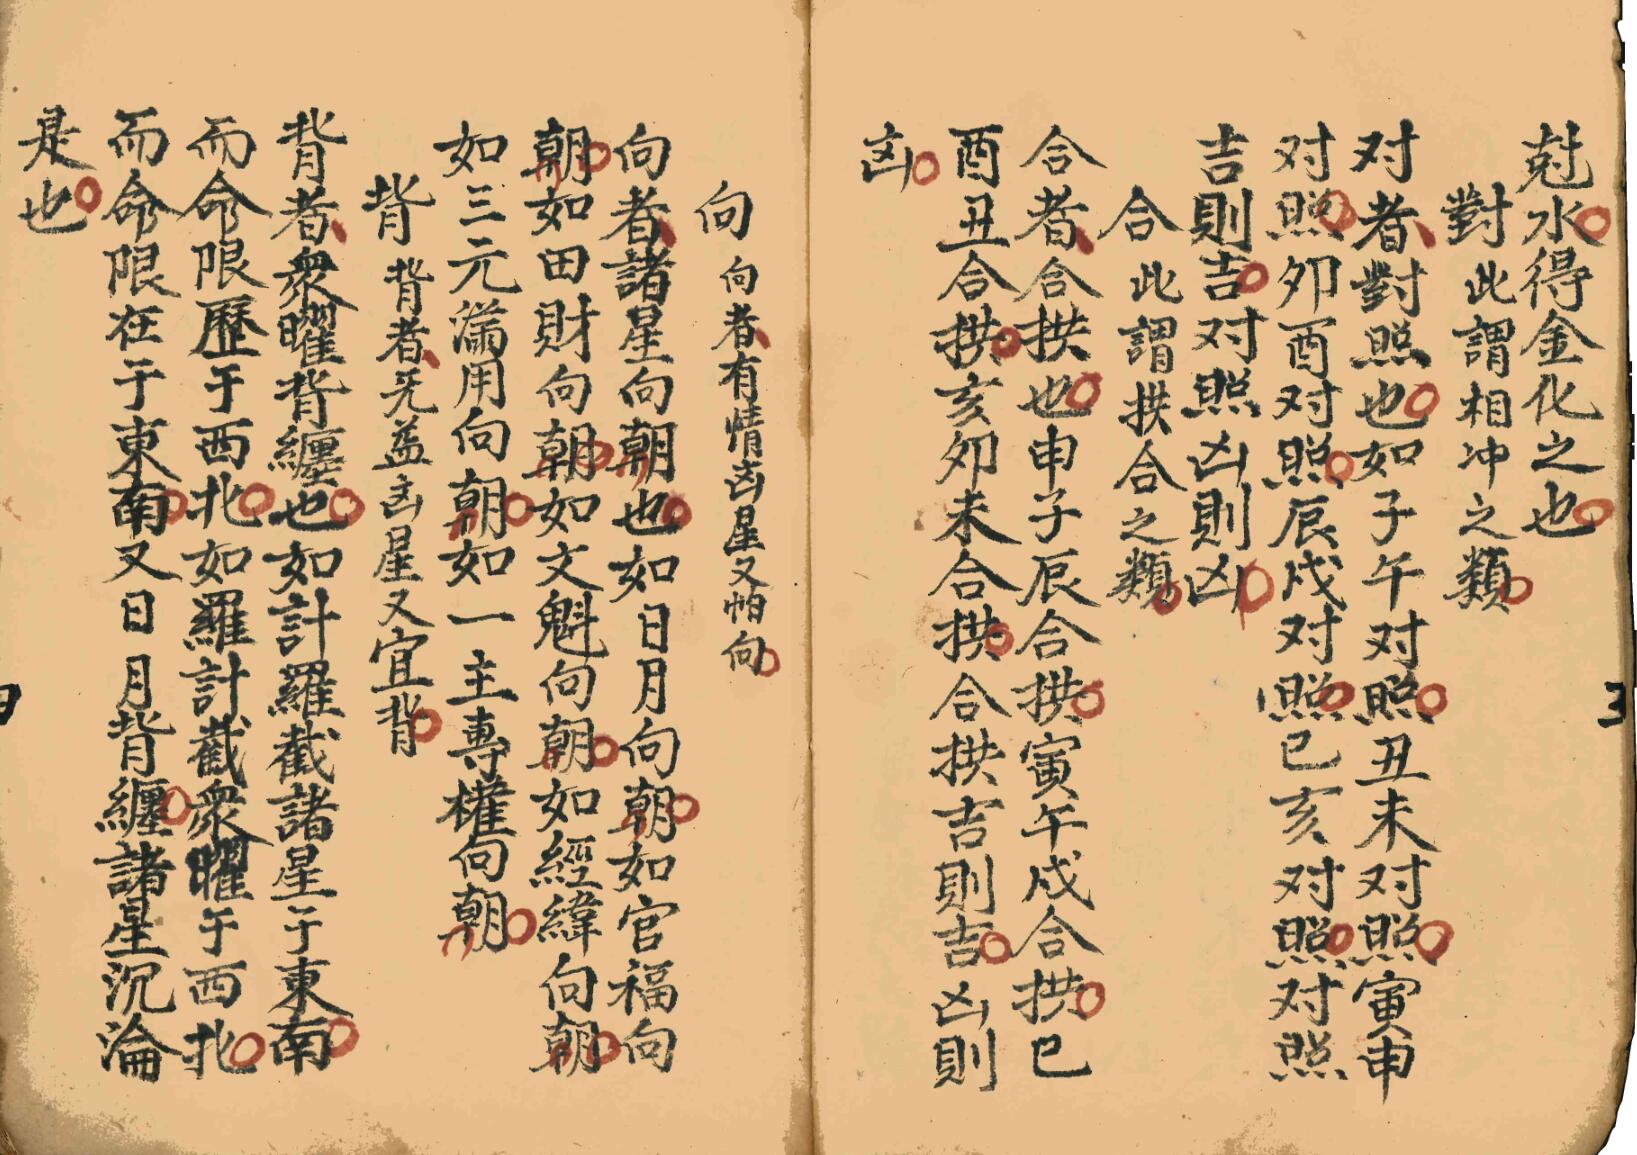 尅水得金化之也
對 此謂相冲之類
对者對照也如子午对照丑未对照寅申
对照夘酉对照辰戍对照巳亥对照对照
吉則吉对照凶則凶
合 此謂拱合之類
合者合拱也申子辰合拱寅午戍合拱巳
酉丑合拱亥夘未合拱合拱吉則吉凶則
凶
3
向 向者有情凶星又怕向
向者諸星向朝也如日月向朝如官福向
朝如田財向朝如文魁向朝如經緯向朝
如三元漏用向朝如一主專權向朝
背 背者无益凶星又宜背
背者衆曜背纏也如計羅截諸星于東南
而命限歷于西北如羅計截衆曜于西北
而命限在于東南又日月背纏諸星沉淪
是也